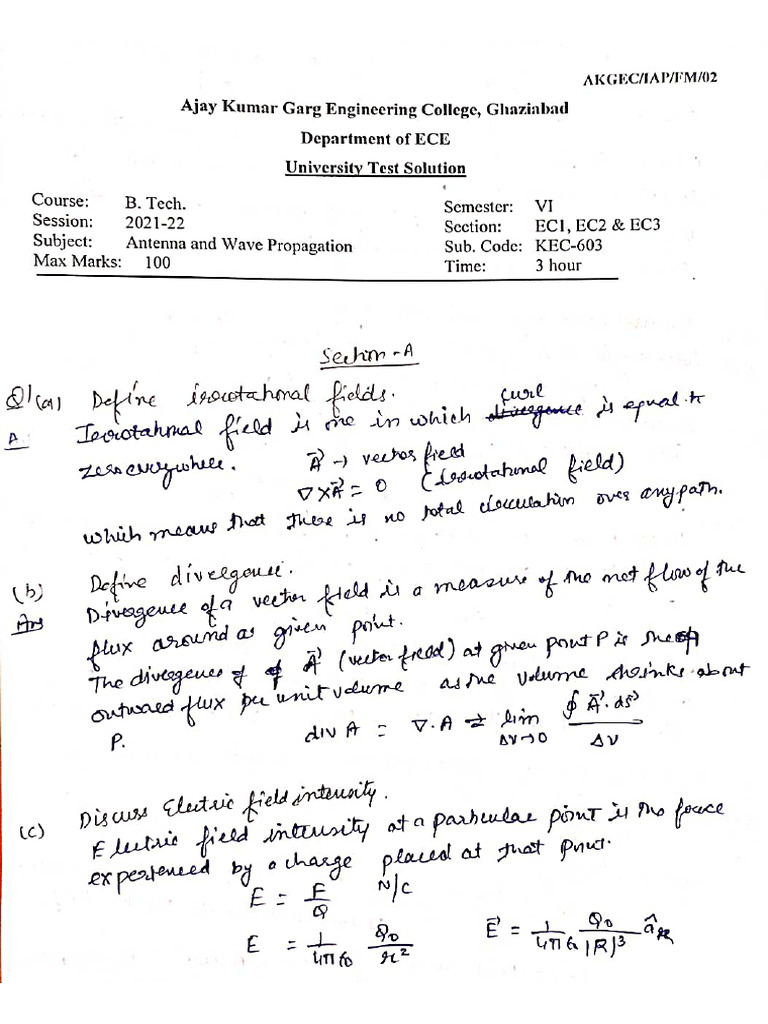 AKGEC/IAP/FM/02
Ajay Kumar Garg Engineering College, Ghaziabad
Department of ECE
University Test Solution
Course: B. Tech. Semester: VI
Session: 2021-22 Section: EC1, EC2 & EC3
Subject: Antenna and Wave Propagation Sub. Code: KEC-603
Max Marks: 100 Time: 3 hour
Section-A
Q1(a) Define irrotational fields.
A. Irrotational field is one in which divergence curl is equal to
zero everywhere. A⃗ → vector field
∇×A⃗ = 0 (Irrotational field)
which means that there is no total circulation over any path.
(b) Define divergence.
Ans Divergence of a vector field is a measure of the net flow of the
flux around as given point.
The divergence of A⃗ (vector field) at given point P is the
outward flux per unit volume as the volume shrinks about
P. div A = ∇.A = lim Δv→0 ∮ A⃗. ds⃗ / Δv
(c) Discuss Electric field intensity.
Electric field intensity at a particular point is the force
experienced by a charge placed at that point.
E = F/Q N/C
E = 1/4πε0 Q0/r² E⃗ = 1/4πε0 Q0/|R|³ âR